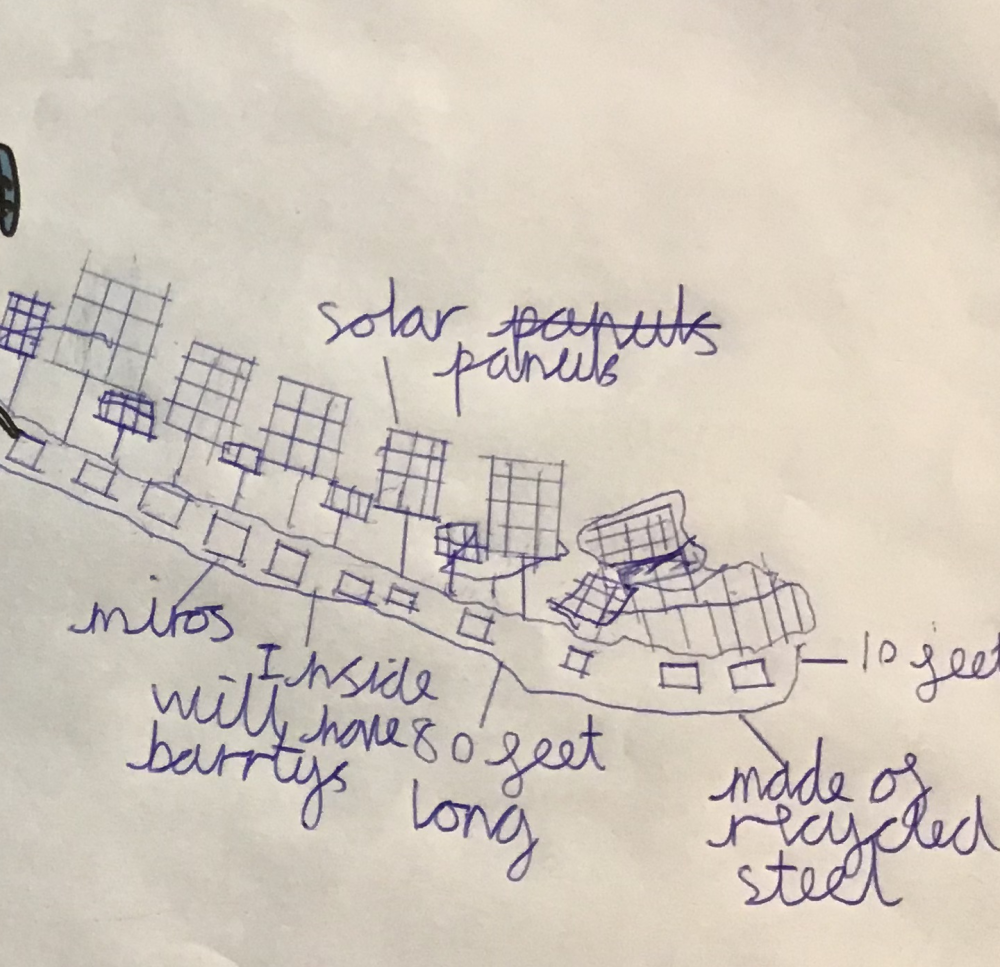 solar panuls
panuls
miros
Inside
will have
barrtys
80 feet
long
10 feet
made of
recycled
steel